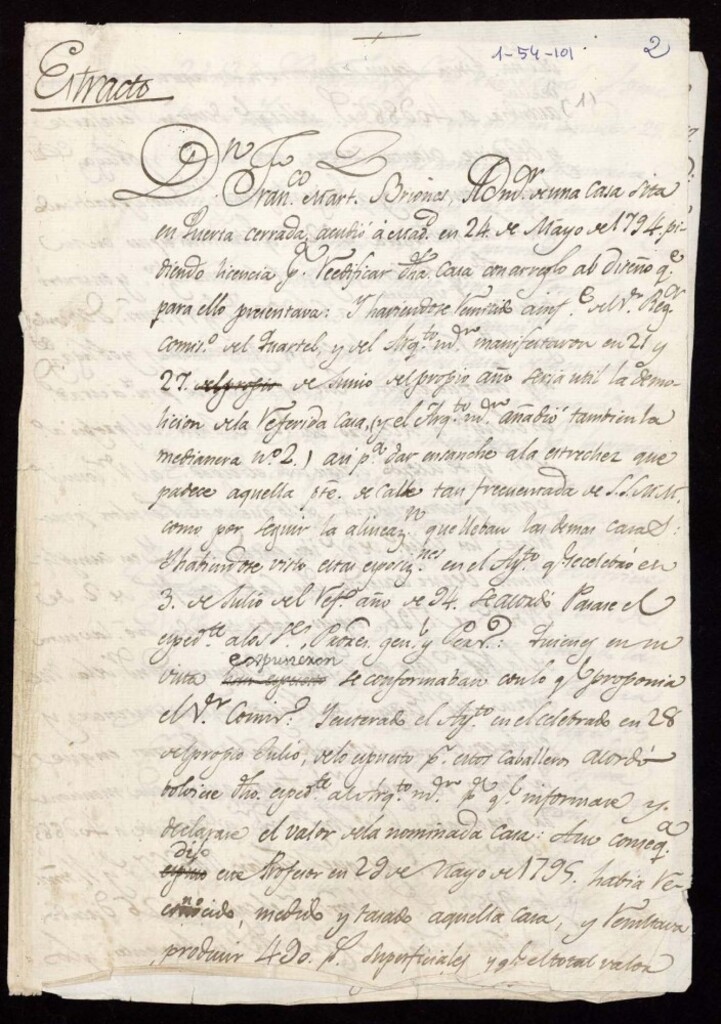 1-54-101
2
11
Extracto
Dn Franco Mart. Briones, Admor de una Casa sita
en Puerta cerrada, acudió á Mad. en 24. de Mayo de 1794. pi-
diendo licencia pa Reedificar dha Casa con arreglo al diseño qe
para ello presentava: Y haviendose Remitido a infe del Sr Regr
Comiso del Quartel, y del Arqto mor manifestaron en 21 y
27. del propio de Junio del propio año seria util la demo-
licion de la Referida Casa, (y el Arqto mor añadió tambien la
medianera no 2.) asi pa dar ensanche a la estrechez que
padece aquella pte. de Calle tan frecuentada de S.S.M.M.
como por seguir la alineazn que lleban las demas casas:
Y habiendose visto estas exposiznes en el Ayto qe se celebró en
3. de Julio del Refo año de 94. se acordó Pasase el
expedte a los Sres Procres genl y Persº: Quienes en su
vista expusieron se conformaban con lo qe proponia
el Sr Comiso: Y enterado el Ayto en el celebrado en 28
del propio Julio, de lo expuesto pr estos Caballeros acordó
bolviese dho. expedte al Arqto mor pa qe informase y
declarase el valor de la nominada Casa: A su conseqa
dijo este Profesor en 29 de Mayo de 1795. habia Re-
conocido, medido y tasado aquella Casa, y Resultava
producir 490. ps. superficiales y qe el total valor